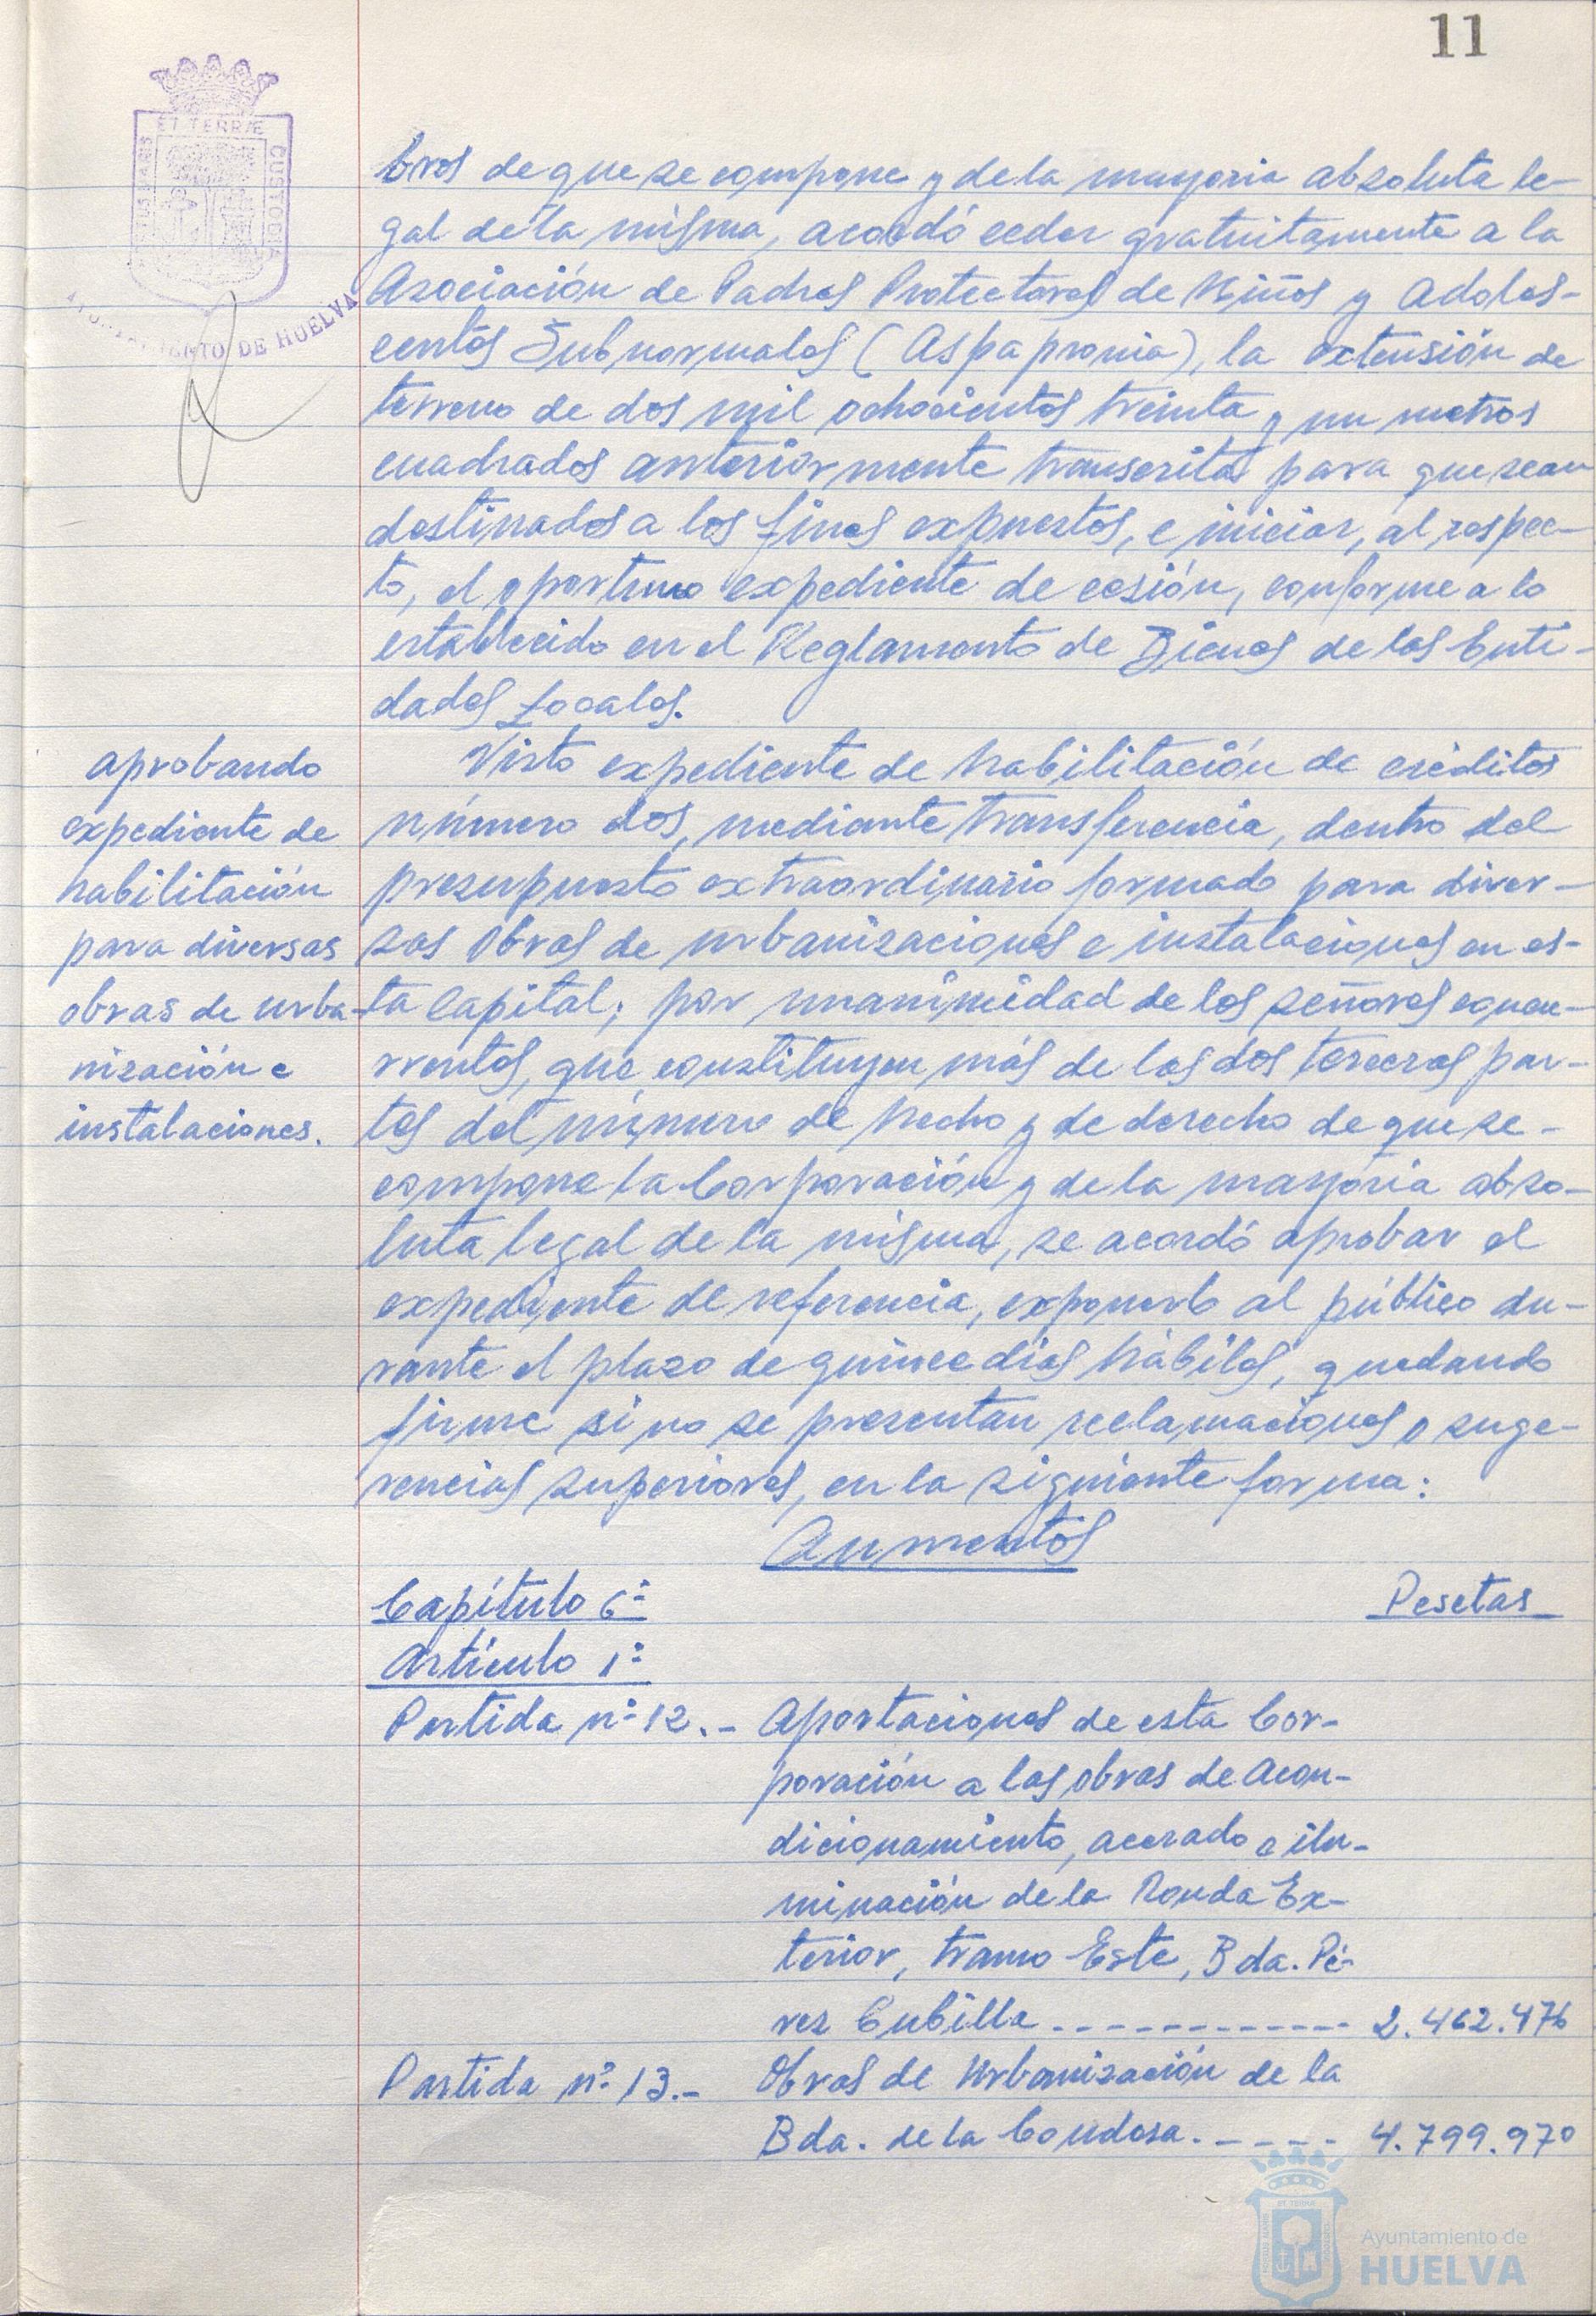 11
ET TERRÆ
CUSTODIA
AYUNTAMIENTO DE HUELVA
bros de que se compone y de la mayoria absoluta le-
gal de la misma, acordó ceder gratuitamente a la
Asociación de Padres Protectores de Niños y Adoles-
centes Subnormales (Aspapronia), la extensión de
terreno de dos mil ochocientos treinta y un metros
cuadrados anteriormente transcritos para que sean
destinados a los fines expuestos, e iniciar, al respec-
to, el oportuno expediente de cesión, conforme a lo
establecido en el Reglamento de Bienes de las Enti-
dades Locales.
aprobando
expediente de
habilitación
para diversas
obras de urba-
nización e
instalaciones.
Visto expediente de habilitación de créditos
número dos, mediante transferencia, dentro del
presupuesto extraordinario formado para diver-
sas obras de urbanizaciones e instalaciones en es-
ta capital; por unanimidad de los señores concu-
rrentes, que constituyen más de las dos terceras par-
tes del número de hecho y de derecho de que se
compone la Corporación y de la mayoría abso-
luta legal de la misma, se acordó aprobar el
expediente de referencia, exponerlo al público du-
rante el plazo de quince dias hábiles, quedando
firme si no se presentan reclamaciones o suge-
rencias superiores, en la siguiente forma:
Aumentos
Capítulo 6º
Pesetas
Artículo 1º
Partida nº 12.- Aportaciones de esta Cor-
poración a las obras de Acon-
dicionamiento, acerado e ilu-
minación de la Ronda Ex-
terior, tramo Este, Bda. Pé-
rez Cubilla ------------ 2.462.476
Partida nº 13.- Obras de Urbanización de la
Bda. de la Condesa.----- 4.799.970
Ayuntamiento de
HUELVA